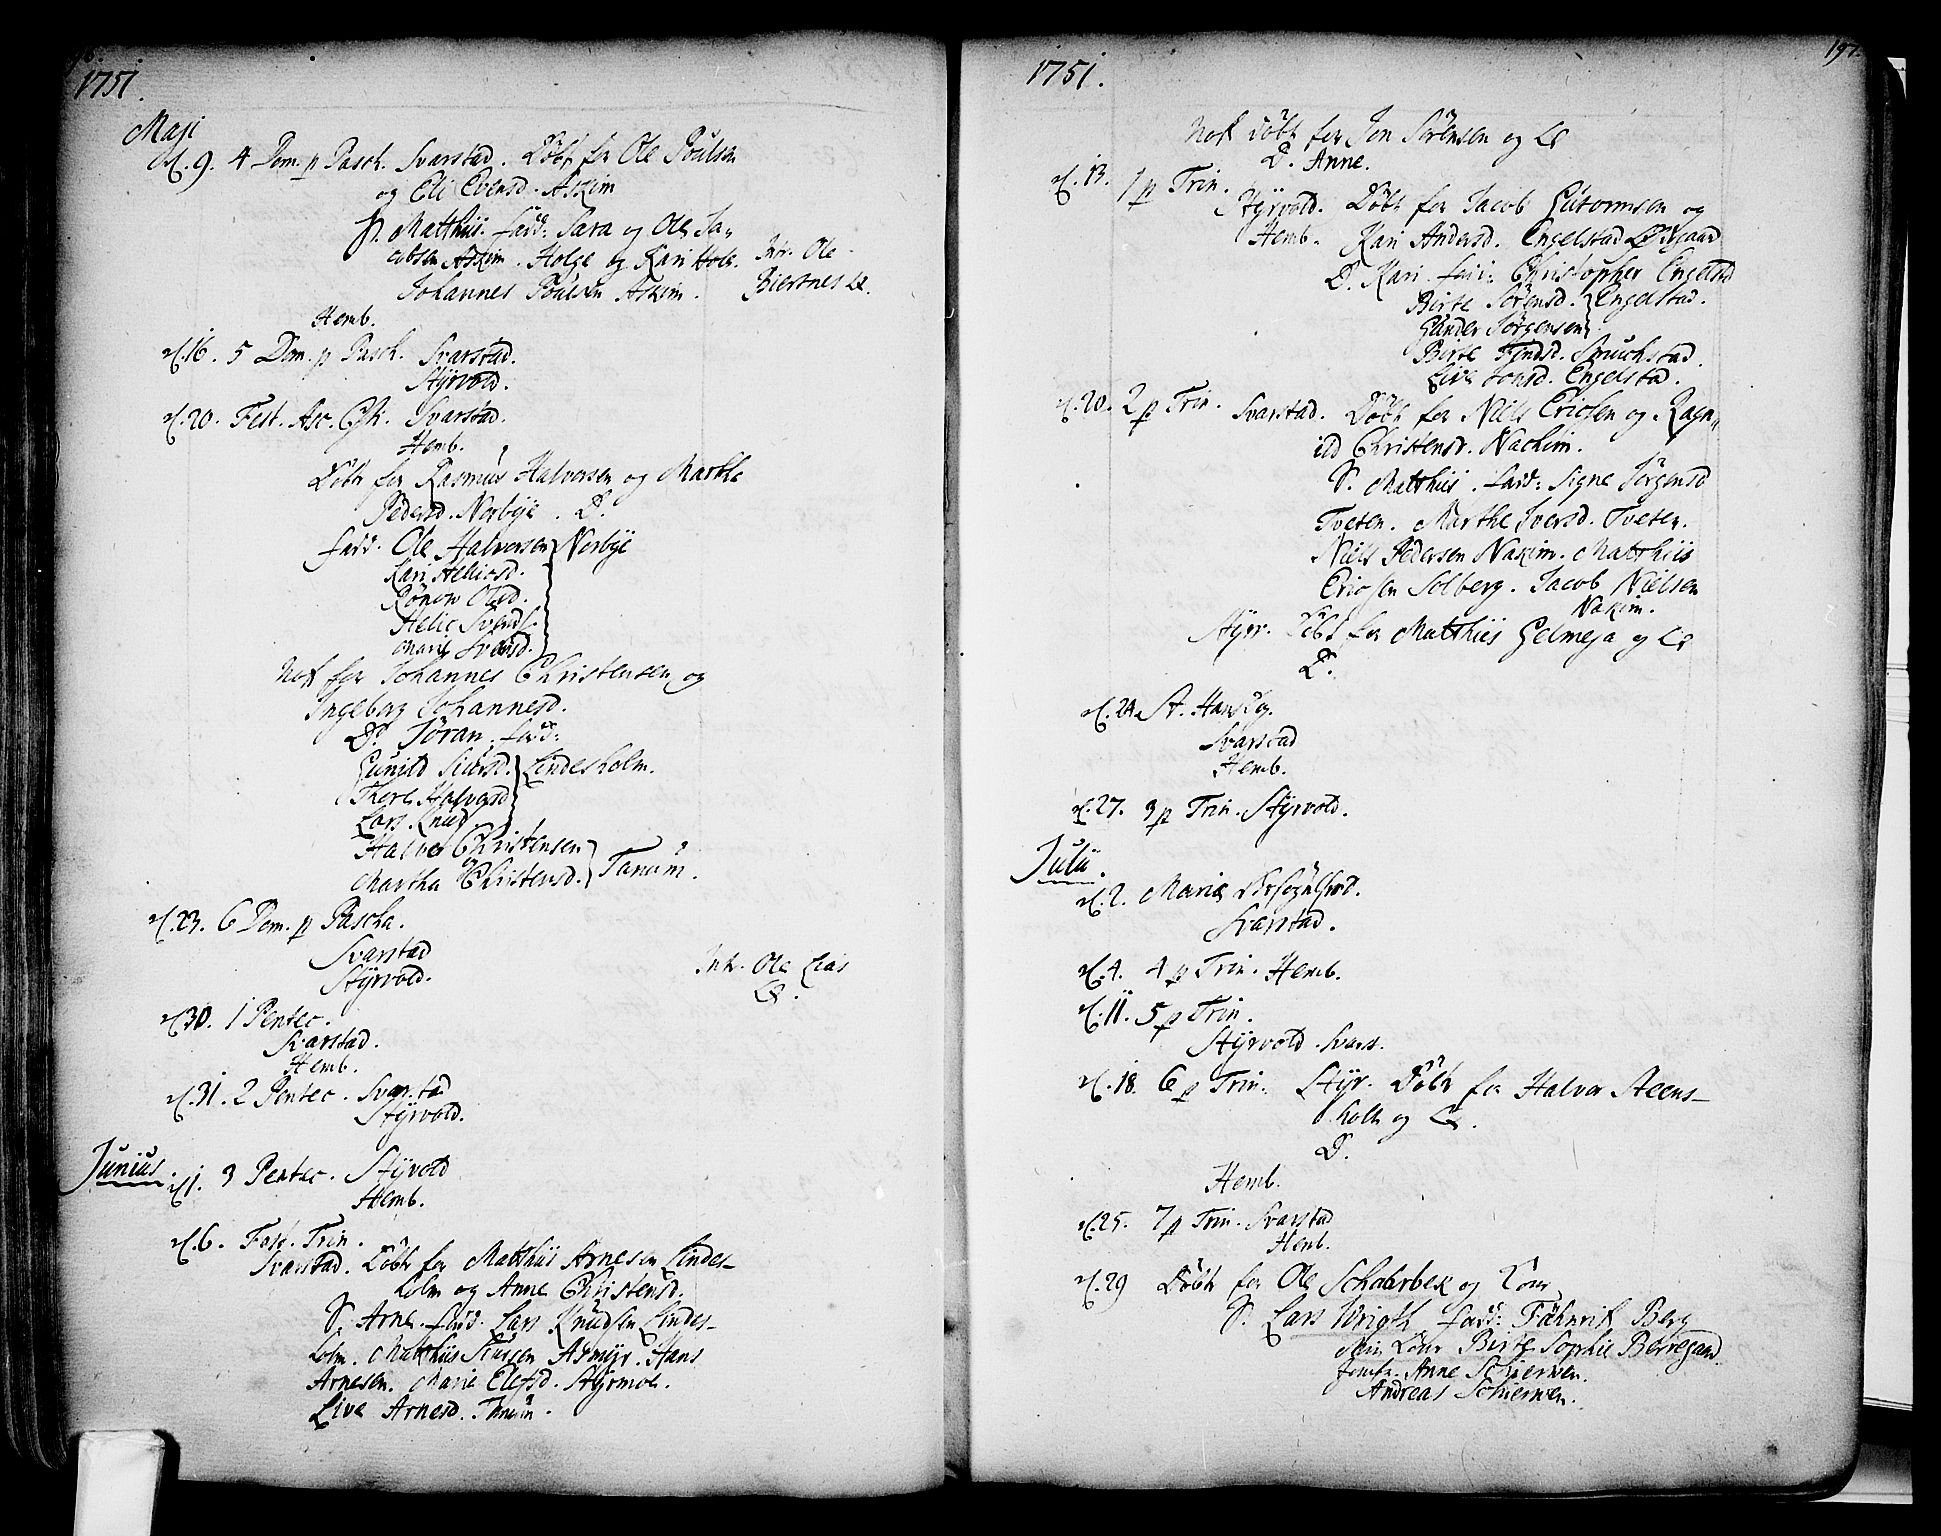 1751.
Maji
d. 9. 4 Dom. p Pasch. Svarstad. Døbt for Ole Poulsen
og Eli Evensd. Askim
S. Matthiis. fadd: Sara og Ole Ja-
cobsen Askim. Holge og Kari Holt.
Johannes Poulsen Askim.
Intr. Ole
Biertnes
Hemb.
d. 16. 5 Dom. p Pasch. Svarstad.
Styrvold.
d. 20. Fest. Asc. Chr. Svarstad.
Hemb.
Døbt for Rasmus Halvorsen og Marthe
Pedersd. Norbÿe. D.
fadd. Ole Halvorsen Norbÿe
Kari
Rönow Olsd.
Helie Svends.
Marie Svensd.
Nok for Johannes Christensen og
Ingeborg Johannesd.
D. Jöran. fadd:
Gunild Siursd. Lindesholm.
Thore Halvorsd
Lars Knud
Halvor Christensen
Martha Christensd. Tanum.
d. 23. 6 Dom. p Pascha.
Svarstad
Styrvold.
Intr. Ole Lias
d. 30. 1 Pentec.
Svarstad.
Hemb.
d. 31. 2 Pentec. Svarstad
Styrvold.
Junius.
d. 1. 3 Pentec. Styrvold
Hemb.
d. 6. Fest. Trin.
Svarstad. Døbt for Matthiis Arnesen Lindes-
holm og Anne Christensd.
S. Arne. fadd. Lars Knudsen Lindes-
holm. Matthiis Siursen Asmyr. Hans
Arnesen. Marie Elefsd. Styrmoe.
Live Arnesd. Tanum.
1751.
197.
Nok døbt for Jon Sörensen og
D. Anne.
d. 13. 1 p Trin.
Styrvold. Døbt for Jacob Gutormsen og
Hemb. Kari Andersd. Engelstad
D. Kari. fadd: Christopher Engelstad
Birte Sörensd. Engelstad.
Gunder Jörgensen
Birte Findsd. Smuchstad.
Live Jonsd. Engelstad.
d. 20. 2 p Trin. Svarstad. Døbt for Niels Ericsen og Ragn-
ild Christensd. Nachim.
S. Matthiis. fadd: Signe Jörgensd
Tveten. Marthe Iversd. Tveten.
Niels Pedersen Nakim. Matthiis
Ericsen Solberg. Jacob Nielsen
Nakim.
Styr. Døbt for Matthiis Gelmeja og
D.
d. 24. St. Hans Dg.
Svarstad
Hemb.
d. 27. 3 p Trin. Styrvold.
Julii.
d. 2. Mariæ
Svarstad.
d. 4. 4 p Trin. Hemb.
d. 11. 5 p Trin.
Styrvold. Svars.
d. 18. 6 p Trin. Styr. Døbt for Halvor Steens-
holt og
D.
Hemb.
d. 25. 7 p Trin. Svarstad
Hemb.
d. 29 Døbt for Ole Schaerbek og
S. Lars Wrigth fadd: Fähnrik Berg
Min Birte Sophie Berregaard.
Jomfr. Anne Schierwen.
Andreas Schierwen.